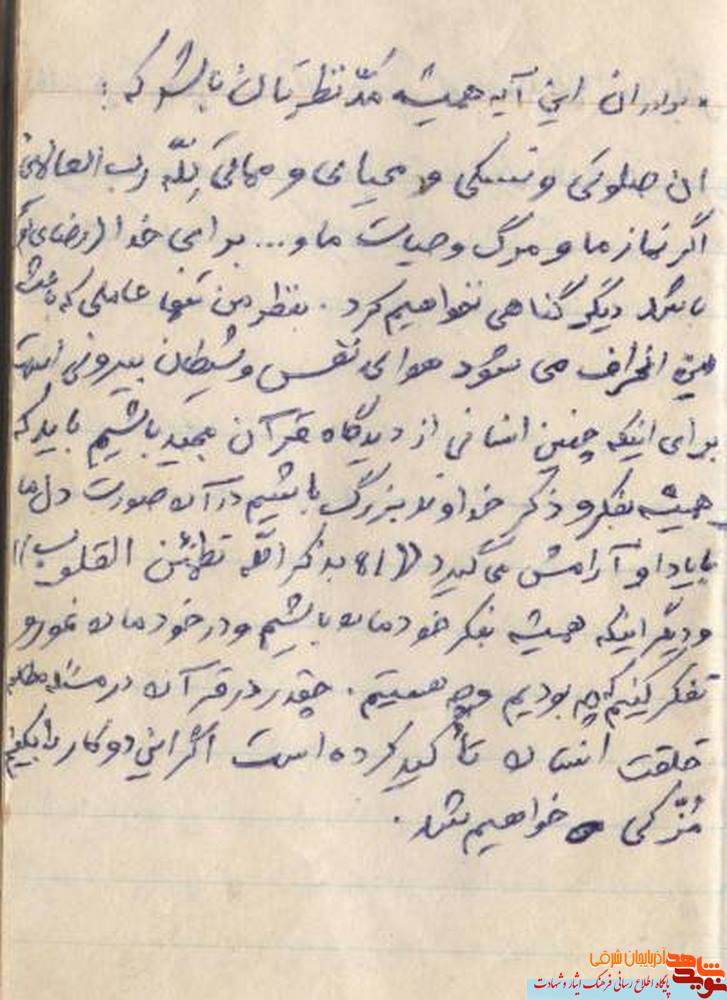 برادران این آیه همیشه مدّ نظرتان باشد که :
ان صلوتی و نسکی و محیای و مماتی لِلّه رب العالمین
اگر نماز ما و مرگ و حیات ما و... برای خدا (رضای او)
باشد دیگر گناهی نخواهیم کرد . بنظر من تنها عاملی که باعث
انحراف می شود هوای نفس و شیطان بیرونی است
برای اینکه چنین انسانی از دیدگاه قرآن مجید باشیم باید که
همیشه بفکر و ذکر خداوند بزرگ باشیم در آن صورت دل ما
با یاد او آرامش می گیرد ((الا بذکر الله تطمئن القلوب))
و دیگر اینکه همیشه بفکر خودمان باشیم و در خودمان غور و
تفکر کنیم که چه بودیم و چه هستیم . چقدر در قرآن در مسئله
خلقت انسان تأکید کرده است اگر این دو کار را بکنیم
مُزّکی خواهیم شد .
شاهد
نوید
آذربایجان شرقی
پایگاه اطلاع رسانی فرهنگ ایثار و شهادت